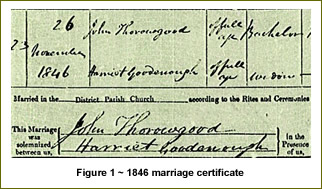 26 John Thorowgood of full age Bachelor
23 November
1846 Harriet Goodenough of full age widow
Married in the District Parish Church according to the Rites and Ceremonies
This Marriage was solemnized between us, John Thorowgood in the Presence of us,
Harriet Goodenough
Figure 1 ~ 1846 marriage certificate